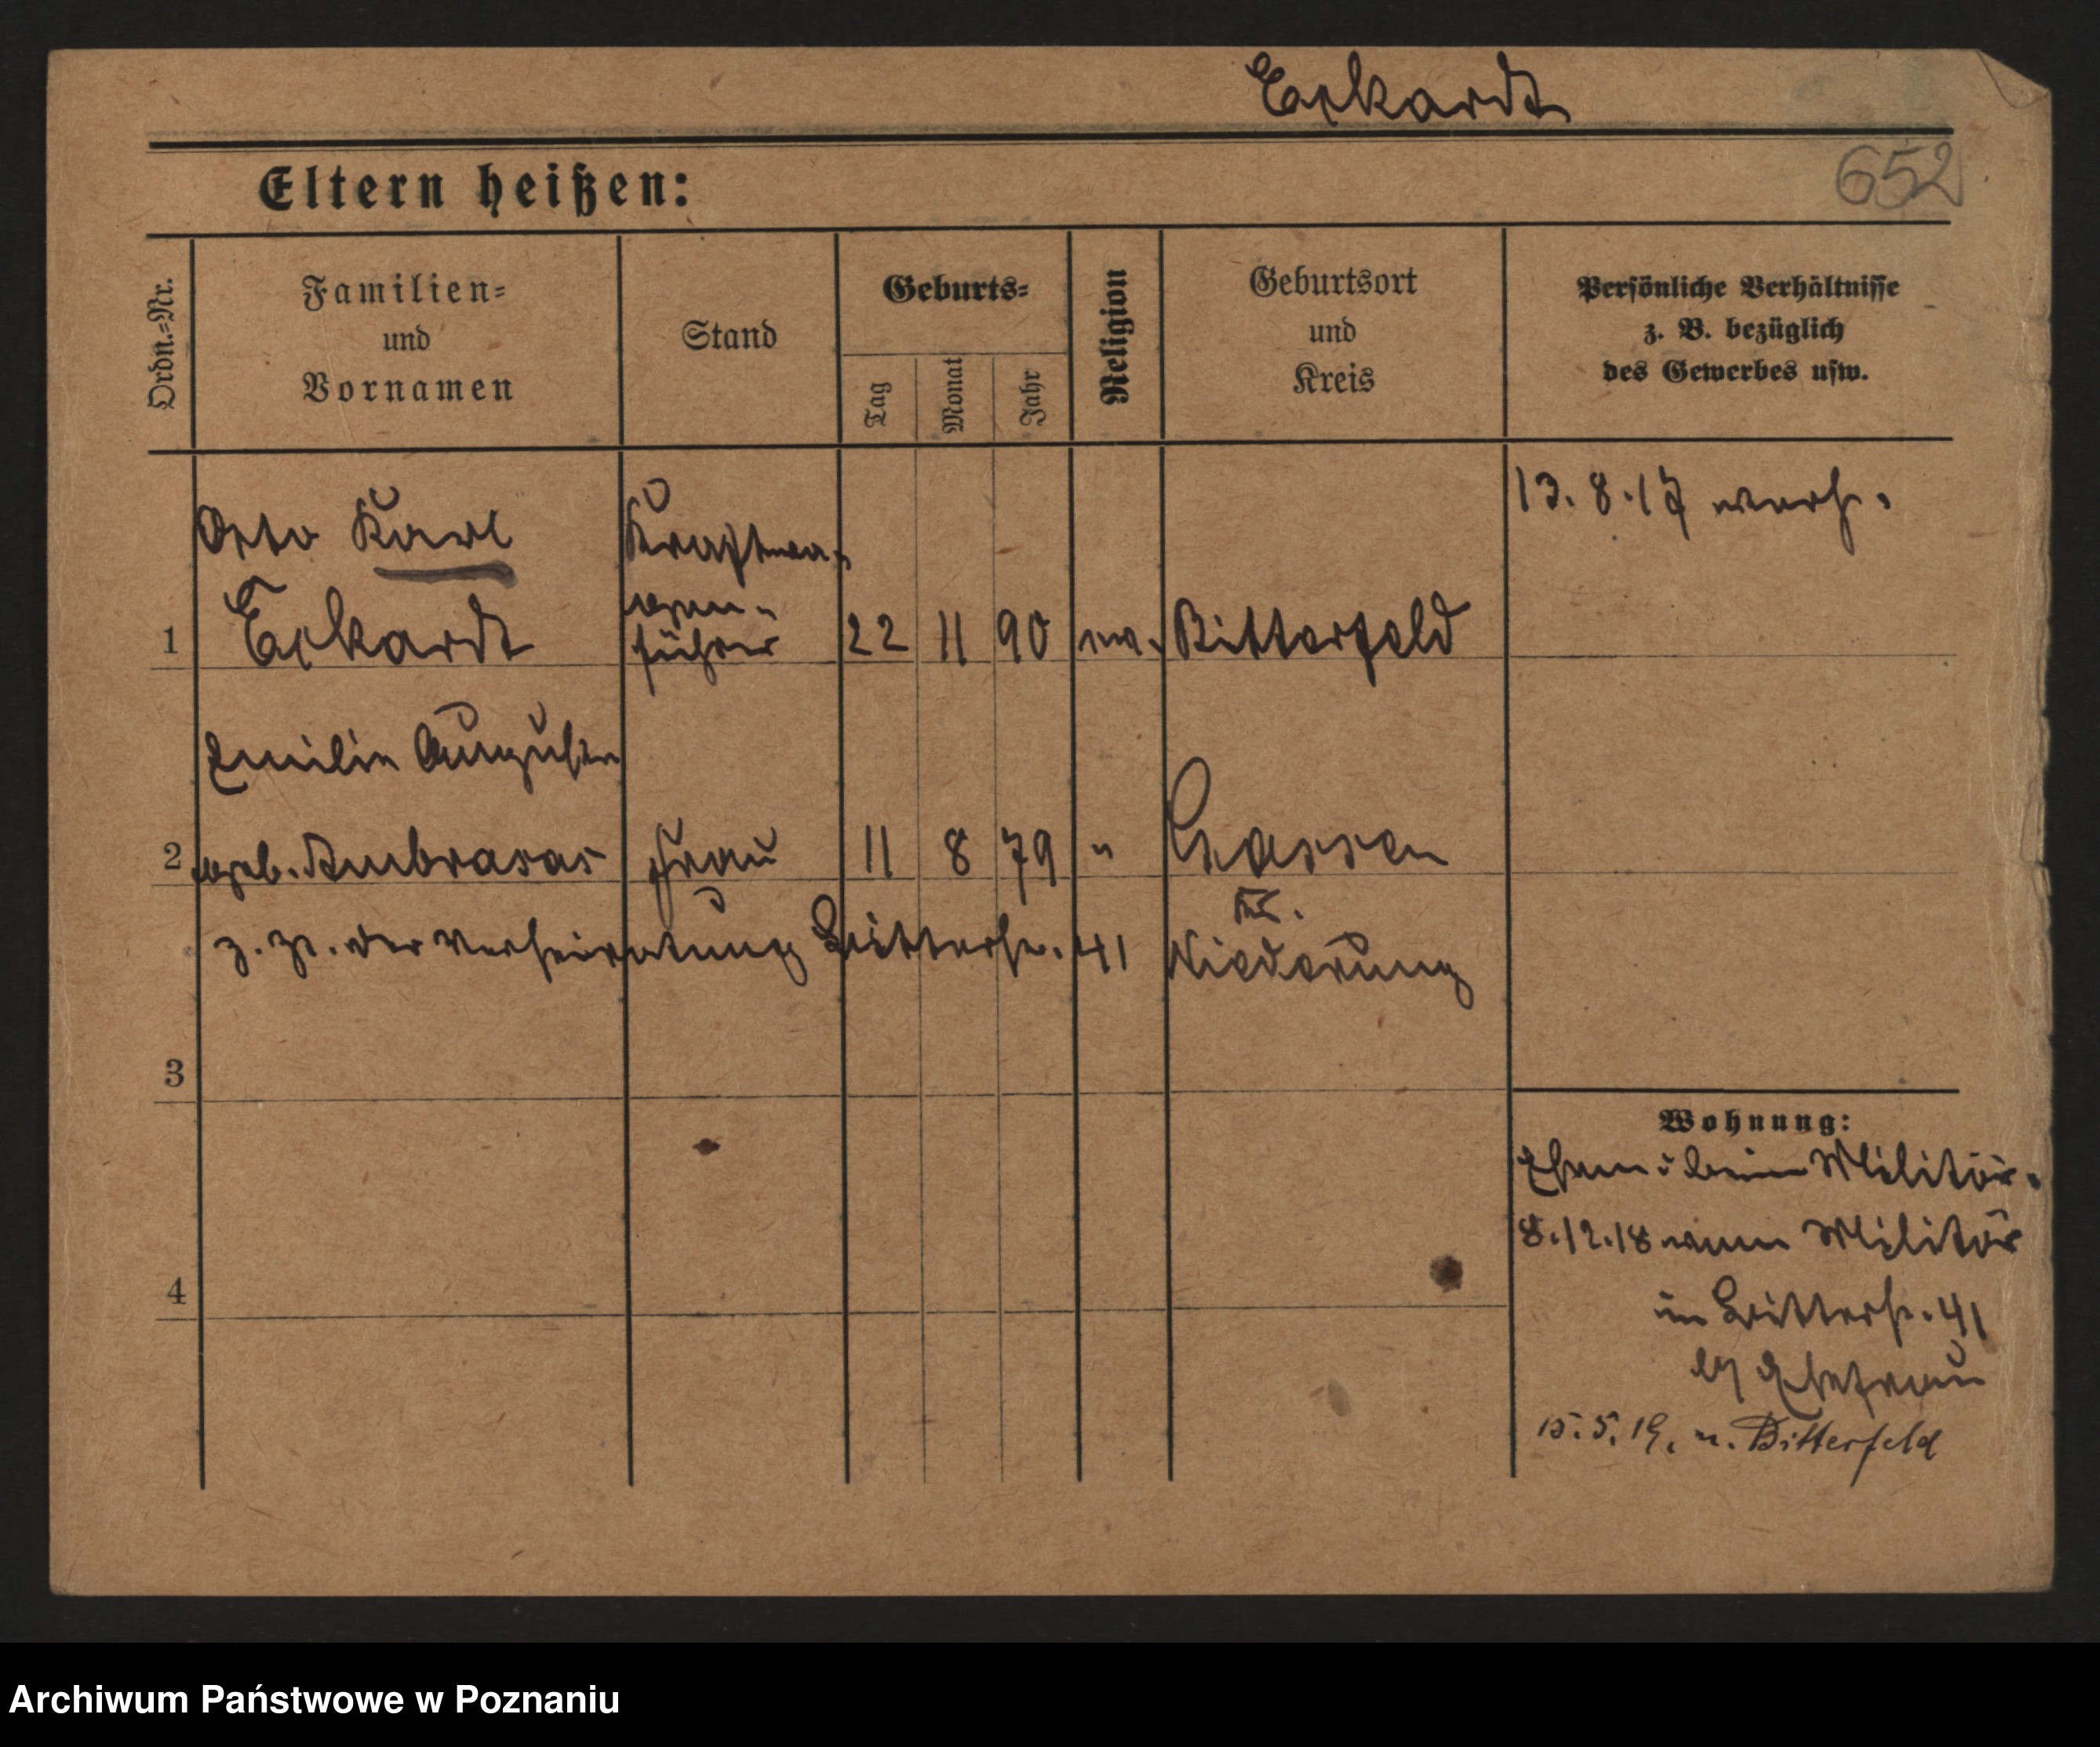 Eckardt
Eltern heißen:
652
Ordn.=Nr.
Familien=
und
Vornamen
Stand
Geburts=
Tag
Monat
Jahr
Religion
Geburtsort
und
Kreis
Persönliche Verhältnisse
z. B. bezüglich
des Gewerbes usw.
13. 8. 17 verh.
Otto Karl
Kraftwa-
Eckardt
gen-
1
führer
22 11 90
Bitterfeld
Emilie Auguste
2
geb. Ambrasas
Frau
11 8 79 "
z. Zt. der Verheiratung Ritterstr. 41
Kr.
Niederung
3
Wohnung:
Ehem. beim Militär.
8.12.18 vom Militär
in Ritterstr. 41
bei Ehefrau
4
15.5.19. n. Bitterfeld
Archiwum Państwowe w Poznaniu